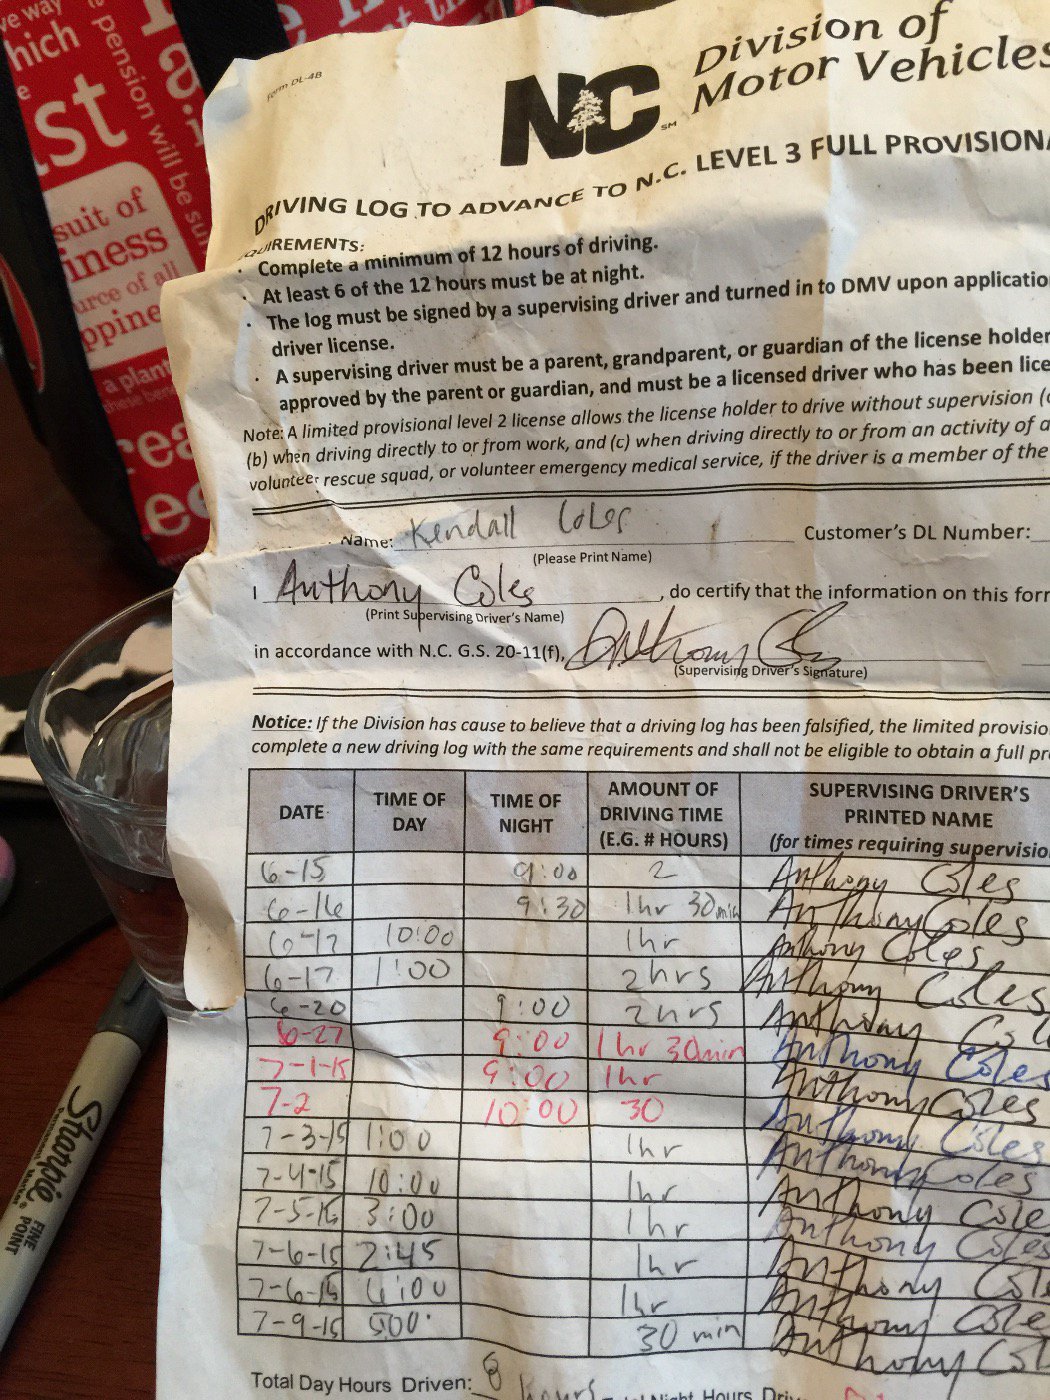 Form DL-4B
NC
SM
Division of
Motor Vehicles
DRIVING LOG TO ADVANCE TO N.C. LEVEL 3 FULL PROVISIONA
QUIREMENTS:
· Complete a minimum of 12 hours of driving.
· At least 6 of the 12 hours must be at night.
· The log must be signed by a supervising driver and turned in to DMV upon applicatio
driver license.
· A supervising driver must be a parent, grandparent, or guardian of the license holder
approved by the parent or guardian, and must be a licensed driver who has been lice
Note: A limited provisional level 2 license allows the license holder to drive without supervision (
(b) when driving directly to or from work, and (c) when driving directly to or from an activity of a
volunteer rescue squad, or volunteer emergency medical service, if the driver is a member of the
Name: Kendall Coles Customer's DL Number:
(Please Print Name)
I Anthony Coles, do certify that the information on this for
(Print Supervising Driver's Name)
in accordance with N.C. G.S. 20-11(f), Anthony Coles
(Supervising Driver's Signature)
Notice: If the Division has cause to believe that a driving log has been falsified, the limited provisio
complete a new driving log with the same requirements and shall not be eligible to obtain a full pr
DATE TIME OF DAY TIME OF NIGHT AMOUNT OF DRIVING TIME (E.G. # HOURS) SUPERVISING DRIVER'S PRINTED NAME (for times requiring supervisio
6-15 9:00 2 Anthony Coles
6-16 9:30 1hr 30min Anthony Coles
6-17 10:00 1hr Anthony Coles
6-17 1:00 2hrs Anthony Coles
6-20 9:00 2hrs Anthony Co
6-27 9:00 1hr 30min Anthony Coles
7-1-15 9:00 1hr Anthony Coles
7-2 10:00 30 Anthony Coles
7-3-15 1:00 1hr Anthony Coles
7-4-15 10:00 1hr Anthony Cole
7-5-15 3:00 1hr Anthony Coles
7-6-15 2:45 1hr Anthony Cole
7-6-15 6:00 1hr Anthony Cole
7-9-15 500 30 min Anthony Col
Total Day Hours Driven: 8 hours Total Night Hours Driv
ve way
hich
e
st
pension will be su
suit of
iness
urce of all
ppine
a plant
rea
e
Sharpie
FINE
POINT